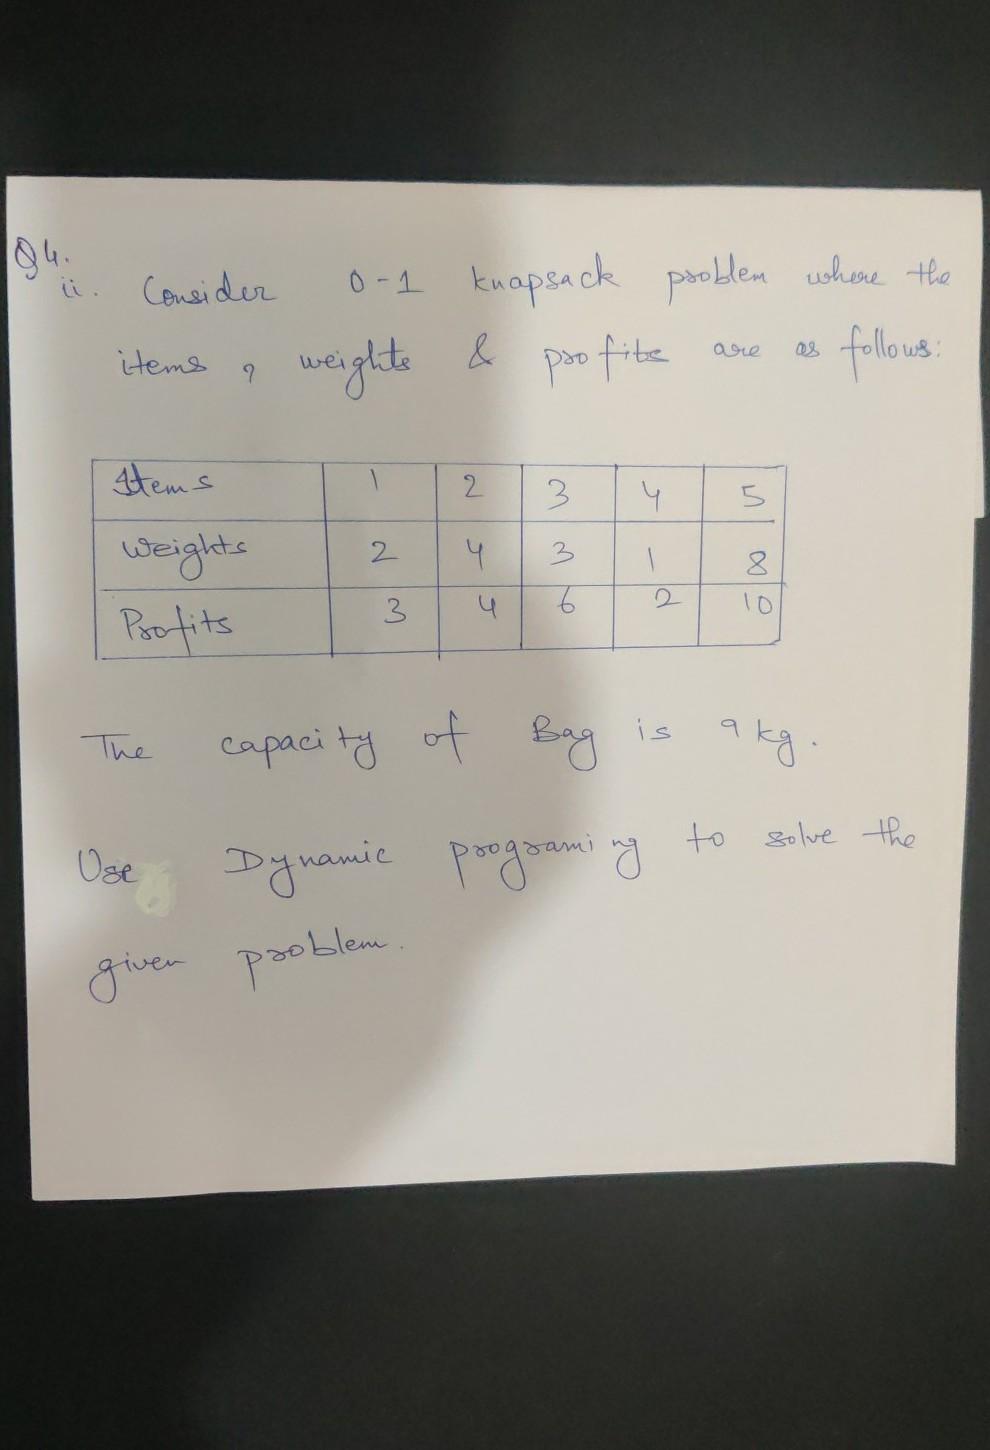 Q4.
ii. Consider 0-1 knapsack problem where the
items, weights & profits are as follows:
Items 1 2 3 4 5
Weights 2 4 3 1 8
Profits 3 4 6 2 10
The capacity of Bag is 9 kg.
Use Dynamic programing to solve the
given problem.